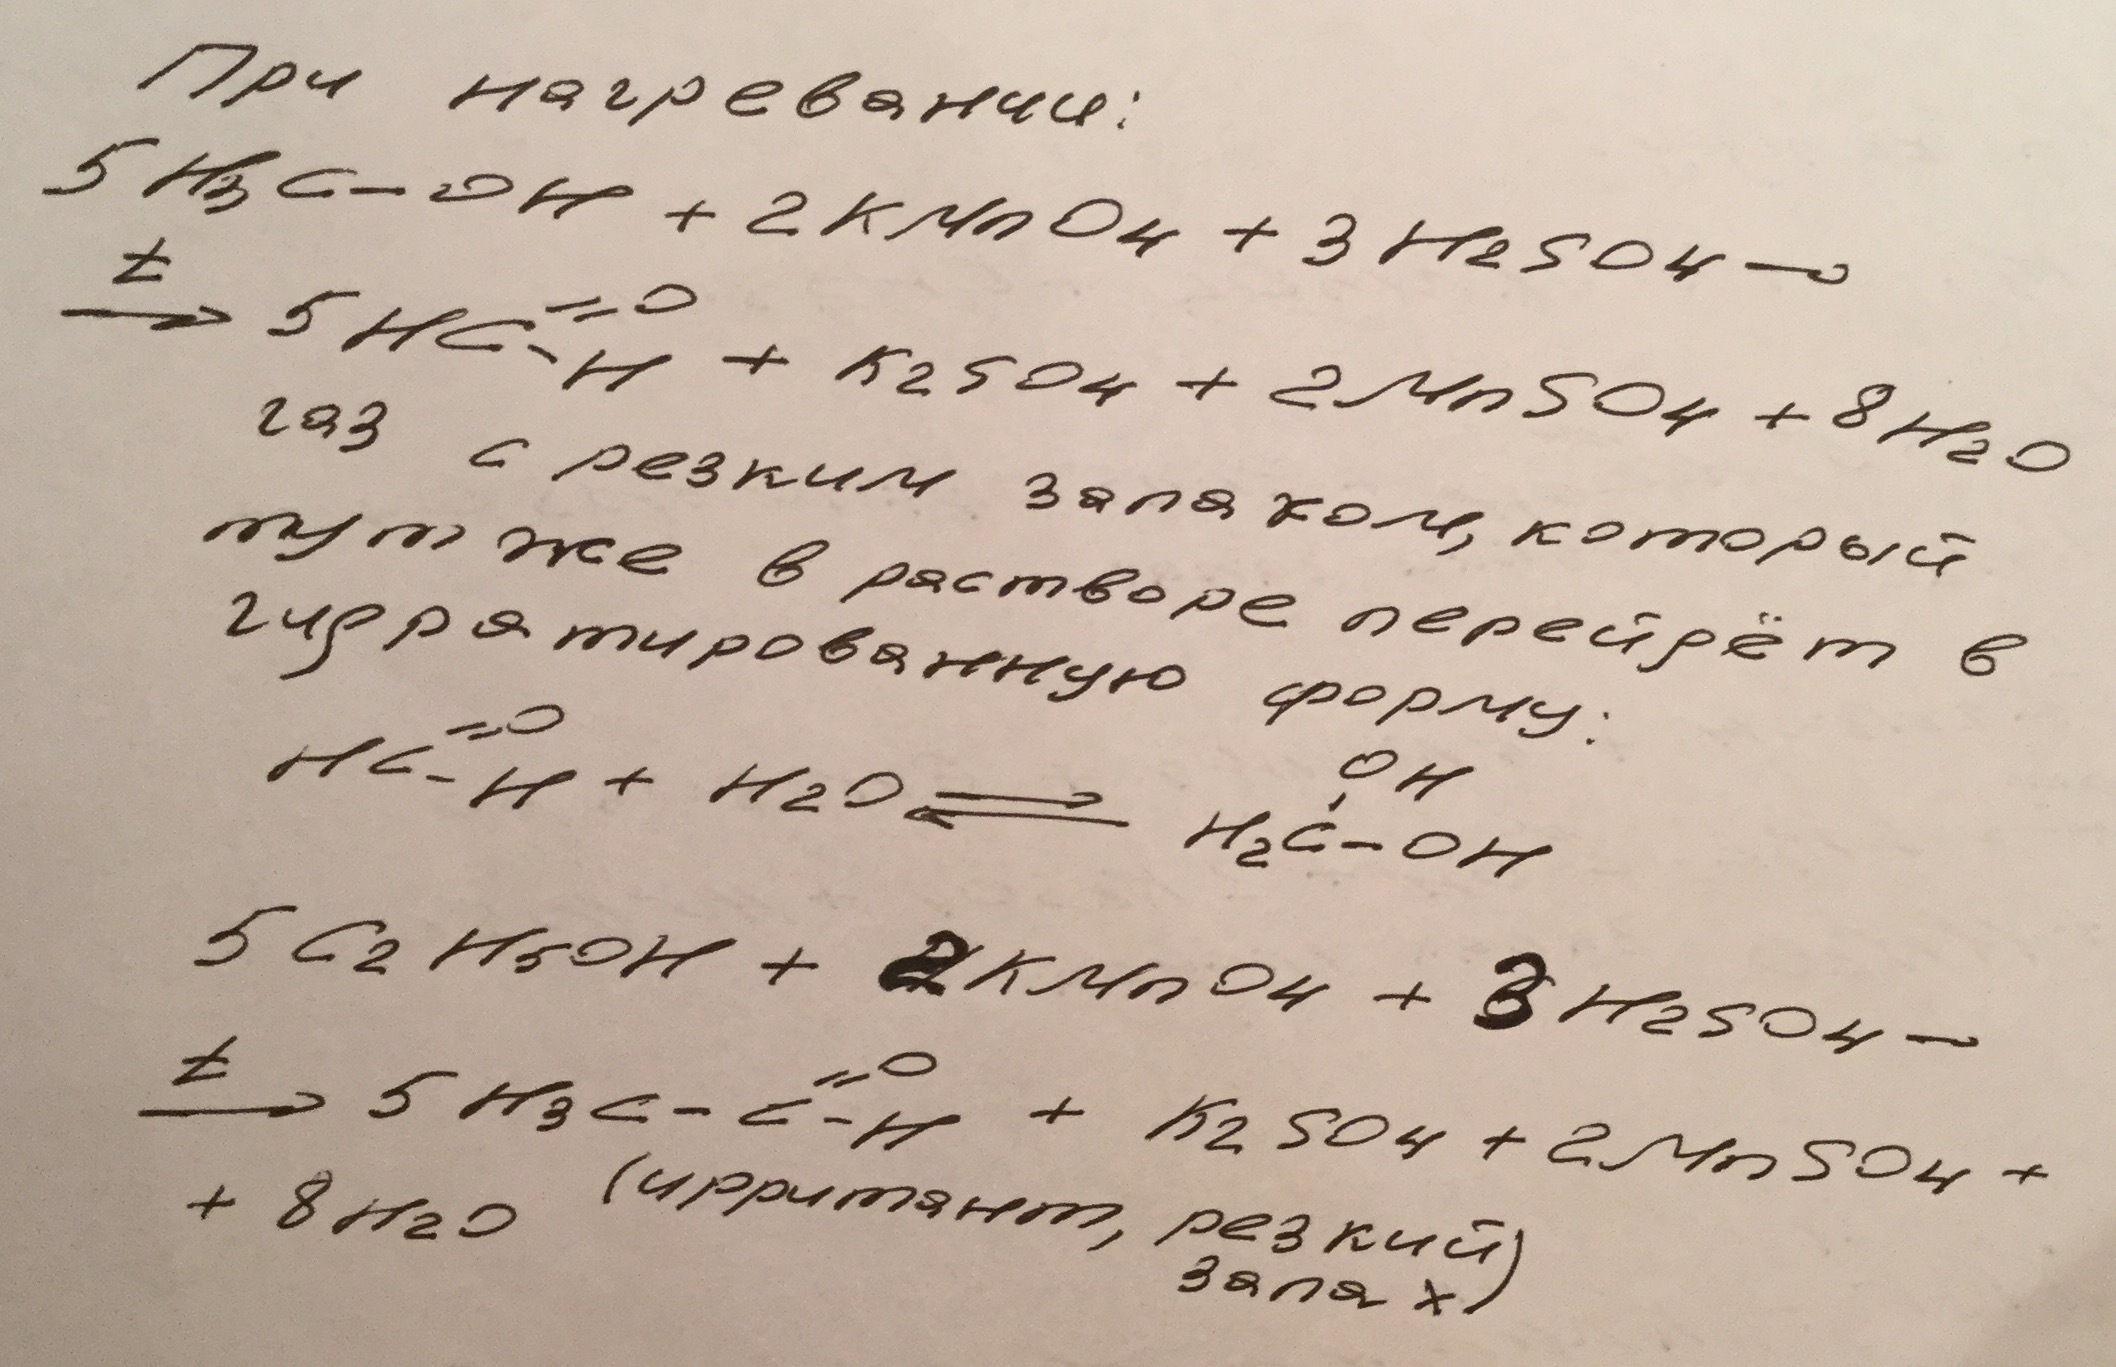 При нагревании:
5H₃C–OH + 2KMnO₄ + 3H₂SO₄ →
t→ 5HC(=O)–H + K₂SO₄ + 2MnSO₄ + 8H₂O
газ с резким запахом, который
тут же в растворе перейдёт в
гидратированную форму:
HC(=O)–H + H₂O ⇌ H₂C(OH)–OH
5C₂H₅OH + 2KMnO₄ + 3H₂SO₄ →
t→ 5H₃C–C(=O)–H + K₂SO₄ + 2MnSO₄ +
+ 8H₂O (ирритант, резкий
запах)